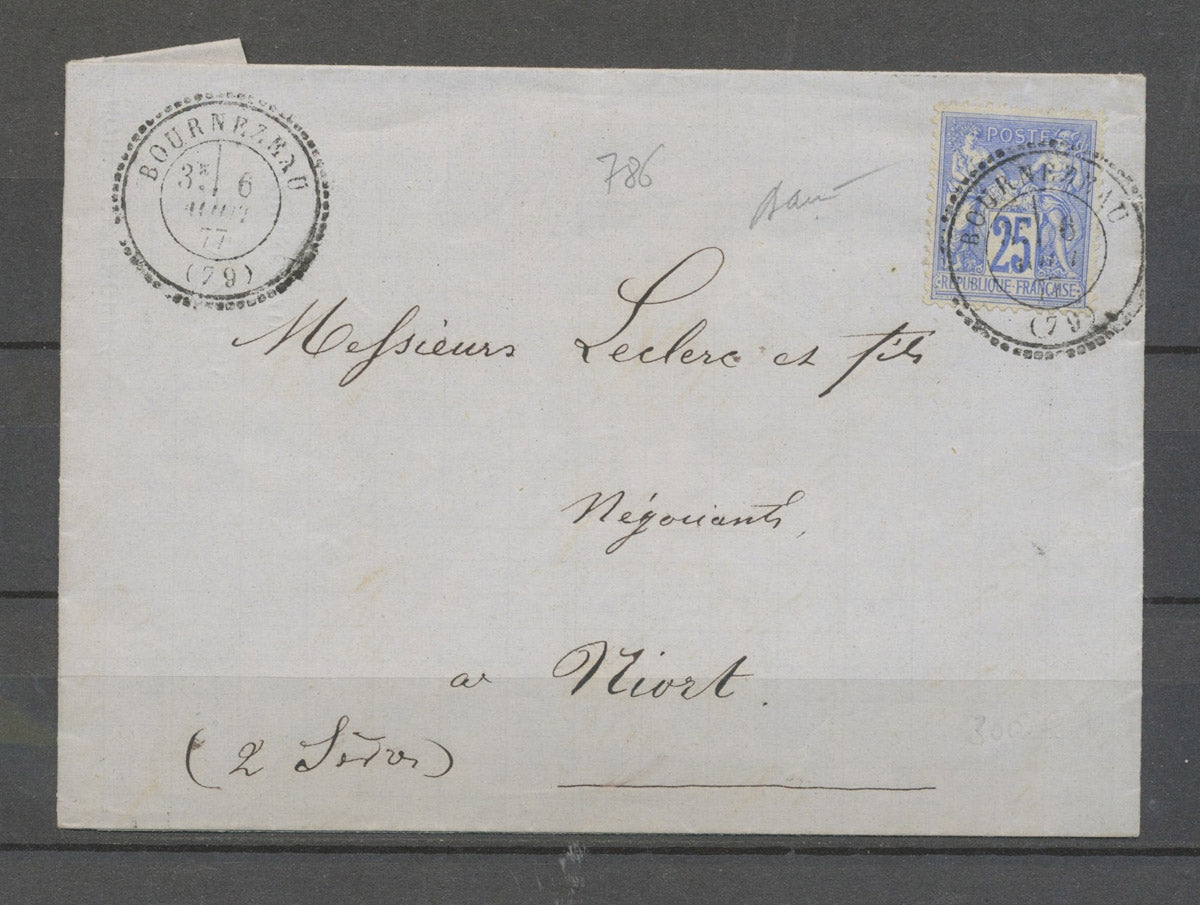 BOURNEZEAU
3E 6
AOUT
77
(79)
786
POSTE
25
REPUBLIQUE-FRANCAISE
BOURNEZEAU
6
(79)
Messieurs Leclerc et fils
Négociants,
a Niort.
(2 Sèvres)